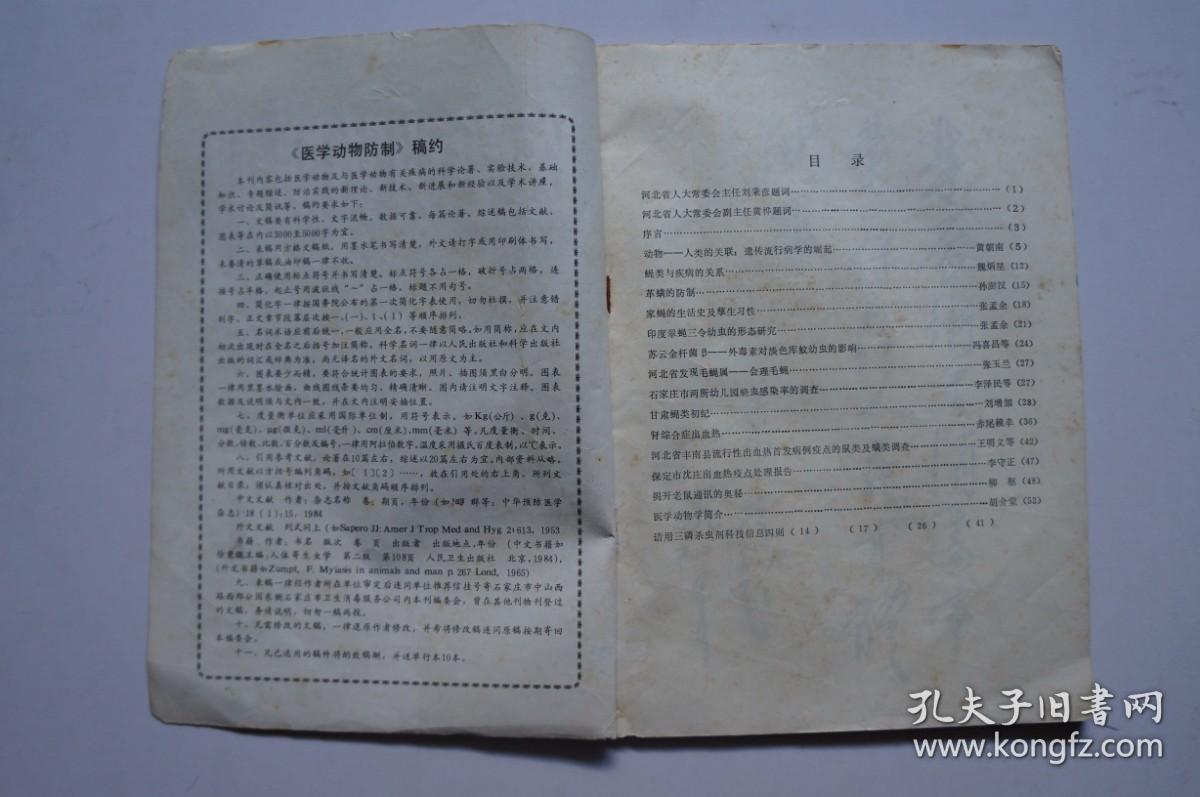 《医学动物防制》稿约
本刊内容包括医学动物及与医学动物有关疾病的科学论著、实验技术、基础
知识、专题综述、防治实践的新理论、新技术、新进展和新经验以及学术讲座，
学术讨论及简讯等。稿约要求如下：
一、文稿要有科学性，文字流畅，数据可靠。每篇论著、综述稿包括文献、
图表等在内以3000至5000字为宜。
二、来稿用方格文稿纸，用墨水笔书写清楚，外文请打字或用印刷体书写，
未誊清的草稿或油印稿一律不收。
三、正确使用标点符号并书写清楚。标点符号各占一格，破折号占两格，连
接号占半格，起止号用波纹线“～”占一格，标题不用句号。
四、简化字一律按国务院公布的第一次简化字表使用，切勿杜撰，并注意错
别字。正文章节段落层次按一、(一)、1、(1) 等顺序排列。
五、名词术语应前后统一，一般应用全名，不要随意简略。如用简称，应在文内
初次出现时在全名之后括号加注简称。科学名词一律以人民出版社和科学出版社
出版的词汇或辞典为准，尚无译名的外文名词，以用原文为主。
六、图表要少而精，要符合统计图表的要求，照片、插图须黑白分明。图表
一律用黑墨水绘画，曲线图线条要均匀、精确清晰。图内请注明文字注释。图表
数据及说明须与文内一致，并在文内注明妥插位置。
七、度量衡单位应采用国际单位制，用符号表示。如Kg(公斤)、g(克)、
mg(毫克)、μg(微克)、ml(毫升)、cm(厘米)、mm(毫米) 等。凡度量衡、时间、
分数、倍数、比数、百分数及编号，一律用阿拉伯数字。温度采用摄氏百度表制，以℃表示。
八、引用参考文献，论著在10篇左右，综述以20篇左右为宜。内部资料从略，
所用文献以方括号编列角码，如〔1〕〔2〕……，放在引用处的右上角，所列文
献目录，须认真核对出处，并按文献角码顺序排列。
中文文献 作者：杂志名称 卷：期页，年份 (如 群等：中华预防医学
杂志)18(1)：15，1984
外文文献 列式同上 (如Sapero JJ: Amer J Trop Med and Hyg 2:613, 1953
书籍 作者：书名 版次 卷 页 出版者 出版地点，年份 (中文书籍如
主编：人体寄生虫学 第二版 第108页 人民卫生出版社 北京，1984)，
(外文书籍如Zumpt, F. Myiasis in animals and man p.267 Lond, 1965)
九、来稿一律经作者所在单位审定后连同单位推荐信挂号寄石家庄市中山西
路西郊公园东侧石家庄市卫生消毒服务公司内本刊编委会，曾在其他刊物刊登过
的文稿，务请说明，切勿一稿两投。
十、凡需修改的文稿，一律退原作者修改，并希将修改稿连同原稿按期寄回
本编委会。
十一、凡已选用的稿件将酌致稿酬，并送单行本10本。
目 录
河北省人大常委会主任刘秉彦题词……(1)
河北省人大常委会副主任黄桦题词……(2)
序言……(3)
动物——人类的关联：遗传流行病学的崛起……黄朝南(5)
蝇类与疾病的关系……魏炳星(12)
革螨的防制……孙澍汉(15)
家蝇的生活史及孳生习性……张孟余(18)
印度翠蝇三令幼虫的形态研究……张孟余(21)
苏云金杆菌β——外毒素对淡色库蚊幼虫的影响……冯喜昌等(24)
河北省发现毛蝇属——会理毛蝇……张玉兰(27)
石家庄市两所幼儿园蛲虫感染率的调查……李泽民等(27)
甘肃蝇类初纪……刘增加(28)
肾综合症出血热……赤尾赖幸(36)
河北省丰南县流行性出血热首发病例疫点的鼠类及螨类调查……王明义等(42)
保定市沈庄出血热疫点处理报告……李守正(47)
揭开老鼠通讯的奥秘……柳 枢(48)
医学动物学简介……胡介堂(53)
诘用三磷杀虫剂科技信息四则(14) (17) (26) (41)
孔夫子旧书网
www.kongfz.com